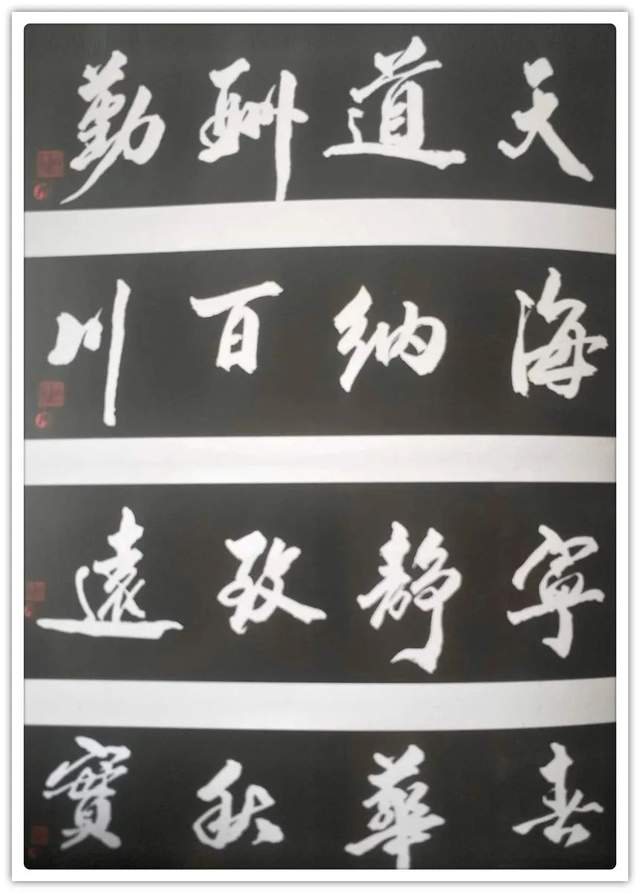 天道酬勤
海纳百川
寧静致遠
春華秋實